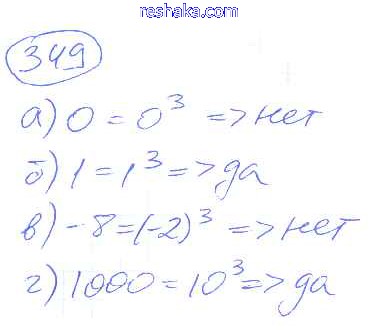 reshaka.com
349
а) 0 = 0³ => нет
б) 1 = 1³ => да
в) -8 = (-2)³ => нет
г) 1000 = 10³ => да